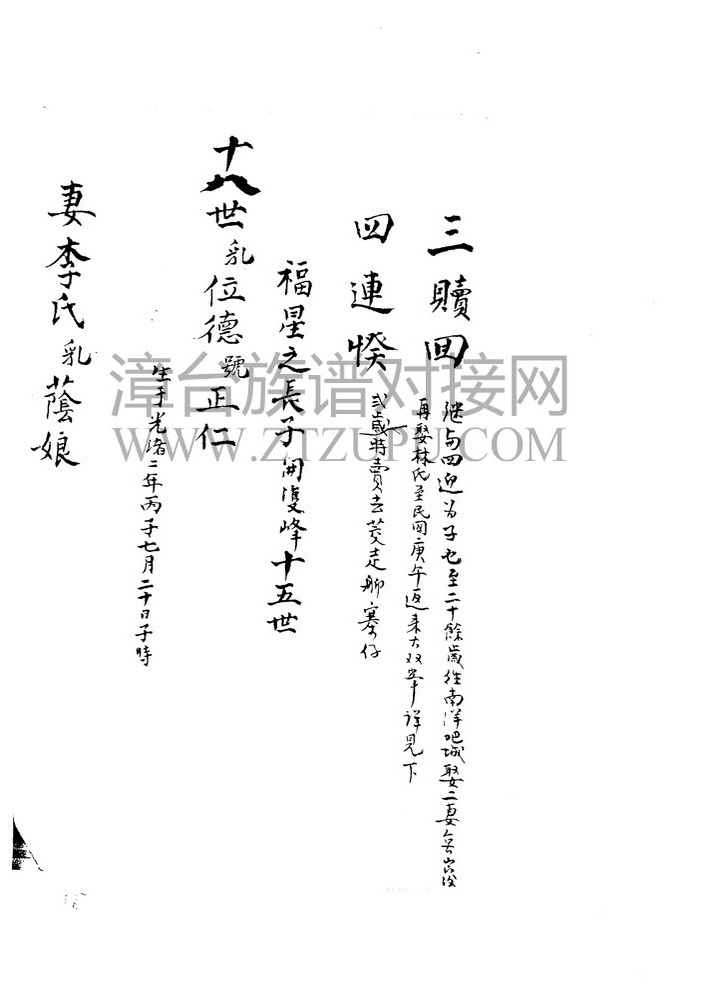 三贖回
继与四迎为子也至二十餘歲往南洋吧城娶二妻
再娶林氏至民国庚午返来大双峯详見下
四連懏
弍歲時賣去 走 寨仔
福星之長子開雙峰十五世
十八世乳位德號正仁
生于光渚二年丙子七月二十日子時
妻李氏乳蔭娘
漳台族谱对接网
WWW.ZTZUPU.COM